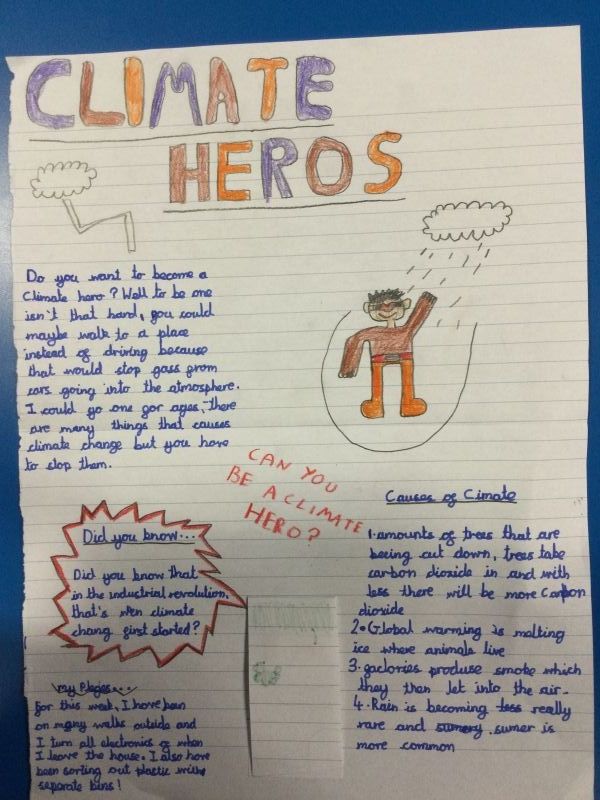 CLIMATE
HEROS
Do you want to become a
Climate hero? Well to be one
isn't that hard, you could
maybe walk to a place
instead of driving because
that would stop gass from
cars going into the atmosphere.
I could go one for ages, there
are many things that causes
climate change but you have
to stop them.
CAN YOU
BE A CLIMATE
HERO?
Did you know...
Did you know that
in the industrial revolution,
that's wen climate
chang first started?
my Plegies...
For this week, I have been
on many walks outside and
I turn all electronics of when
I leave the house. I also have
been sorting out plastic with
separate bins!
Causes of Cimate
1. amounts of trees that are
being cut down, trees take
carbon dioxide in and with
less there will be more Carbon
dioxide
2. Global warming is melting
ice where animals live
3. factories produse smoke which
they then let into the air.
4. Rain is becoming less really
rare and sumery sumer is
more common